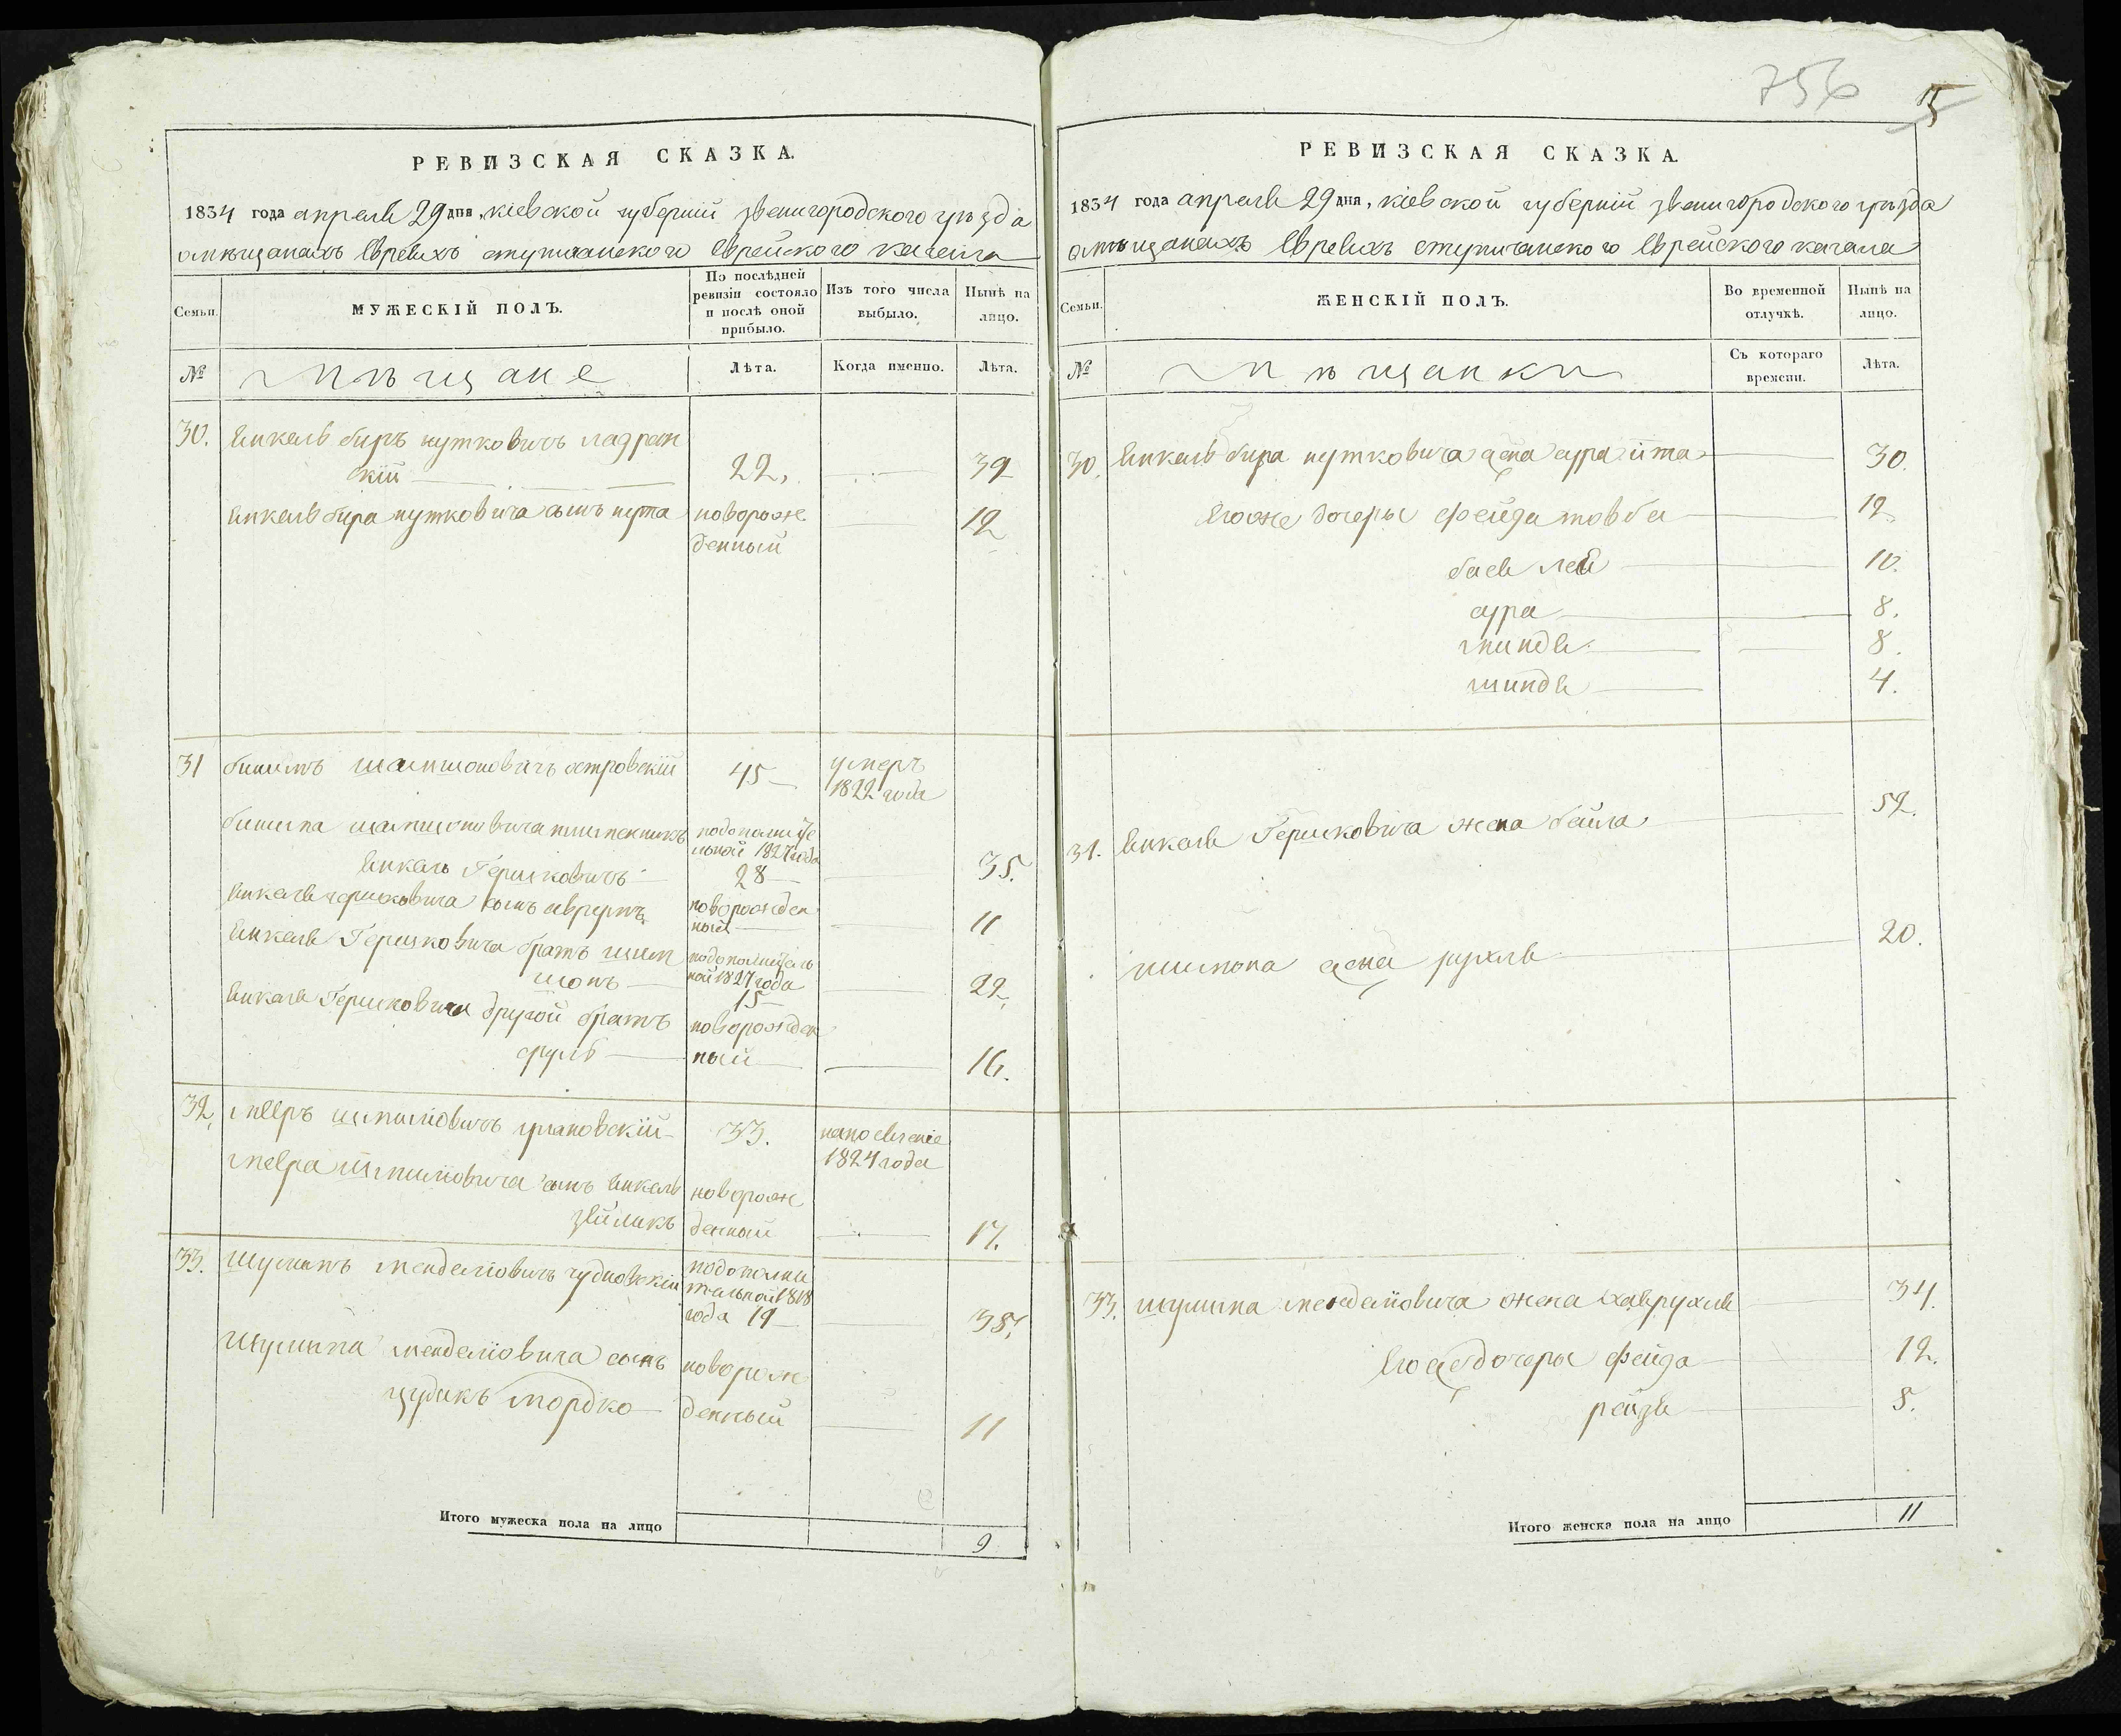 756
15
РЕВИЗСКАЯ СКАЗКА.
1834 года апреля 29 дня, кіевской губерніи звенигородского уѣзда
омѣщанахъ Евреяхъ Еврейского кагала
Семьи.
МУЖЕСКІЙ ПОЛЪ.
По послѣдней ревизіи состояло и послѣ оной прибыло.
Изъ того числа выбыло.
Нынѣ на лицо.
№
мѣщане
Лѣта.
Когда именно.
Лѣта.
30. Янкель беръ нутковичъ
скій 22, 39
Янкель бера нутковича сынъ нута новорож
денный 12
31 шамшоновичъ островскій 45 умеръ
1822 года
шамшоновича племенникъ подополните
льной 1827 года
Янкель Гершковичъ 28 35.
Янкеля гершковича сынъ новорожден
ный 11
Янкеля Гершковича братъ шим подополнитель
шонъ ной 1827 года
15 22,
Янкеля Гершковича другой братъ новорожден
сруль ный 16.
32, мееръ 33. напоселеніе
1824 года
меера сынъ Янкель новорож
зейликъ денный 17.
33. Шулимъ менделіовичъ чудновскій подополни
тельной 1818
года 19 38,
Шулима менделіовича сынъ новорож
мордко денный 11
Итого мужеска пола на лицо 9
РЕВИЗСКАЯ СКАЗКА.
1834 года апреля 29 дня, кіевской губерніи звенигородского уѣзда
омѣщанахъ Евреяхъ Еврейского кагала
Семьи.
ЖЕНСКІЙ ПОЛЪ.
Во временной отлучкѣ.
Нынѣ на лицо.
№
мѣщанки
Съ котораго времени.
Лѣта.
30. Янкель бера нутковича жена сура ита 30.
Егоже дочеры фейга товба 12
бася лея 10.
сура 8.
миндя 8.
шиндя 4.
31. Янкеля Гершковича жена бейла 52.
жена рухля 20.
33. шулима менделіовича жена хаврухля 34.
Егоже дочеры фейга 12.
рейзя 8.
Итого женска пола на лицо 11